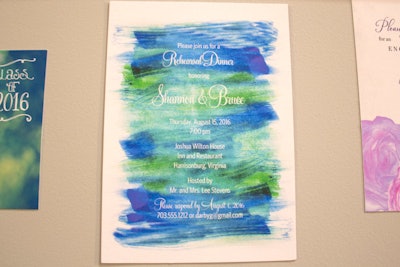 CLASS
OF
2016
Please join us for a
Rehearsal Dinner
honoring
Shannon & Bruce
Thursday, August 15, 2016
7:00 pm
Joshua Wilton House
Inn and Restaurant
Harrisonburg, Virginia
Hosted by
Mr. and Mrs. Lee Stevens
Please respond by August 1, 2016
703.555.1212 or darbyg@gmail.com
Please
for an